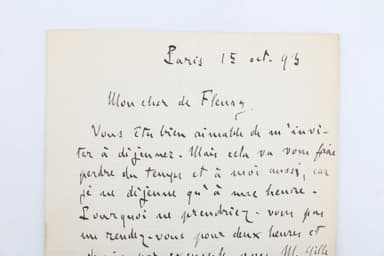 Paris 15 oct. 93
Mon cher de Fleury,
Vous êtes bien aimable de m'invi-
ter à déjeuner. Mais cela va vous faire
perdre du temps et à moi aussi, car
je ne déjeune qu'à une heure.
Pourquoi ne prendriez-vous pas
un rendez-vous pour deux heures et
par exemple, avec M. Gille